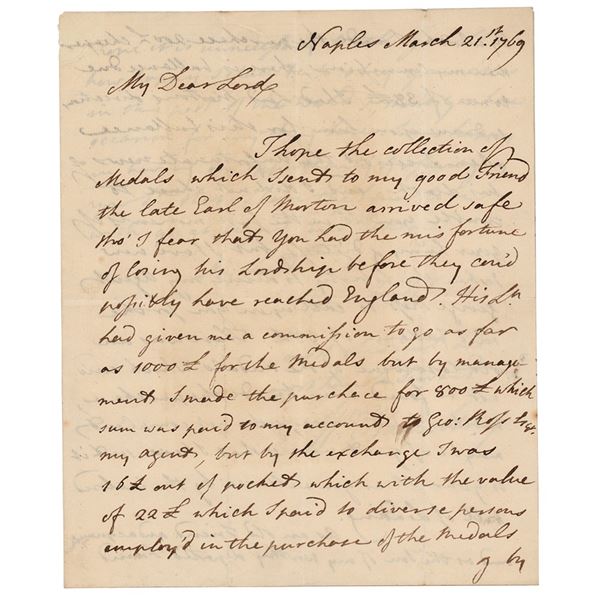 Naples March 21.st 1769
My Dear Lord
I hope the collection of
Medals which I sent to my good Friend
the late Earl of Morton arrived safe
tho' I fear that You had the misfortune
of losing his Lordship before they cou'd
possibly have reached England. His Lp
had given me a commission to go as far
as 1000£ for the Medals but by manage-
ment I made the purchace for 800£ which
sum was paid to my account to Geo: Ross Esqr.
my agent, but by the exchange I was
16£ out of pocket which with the value
of 22£ which I paid to diverse persons
employ'd in the purchase of the Medals
by